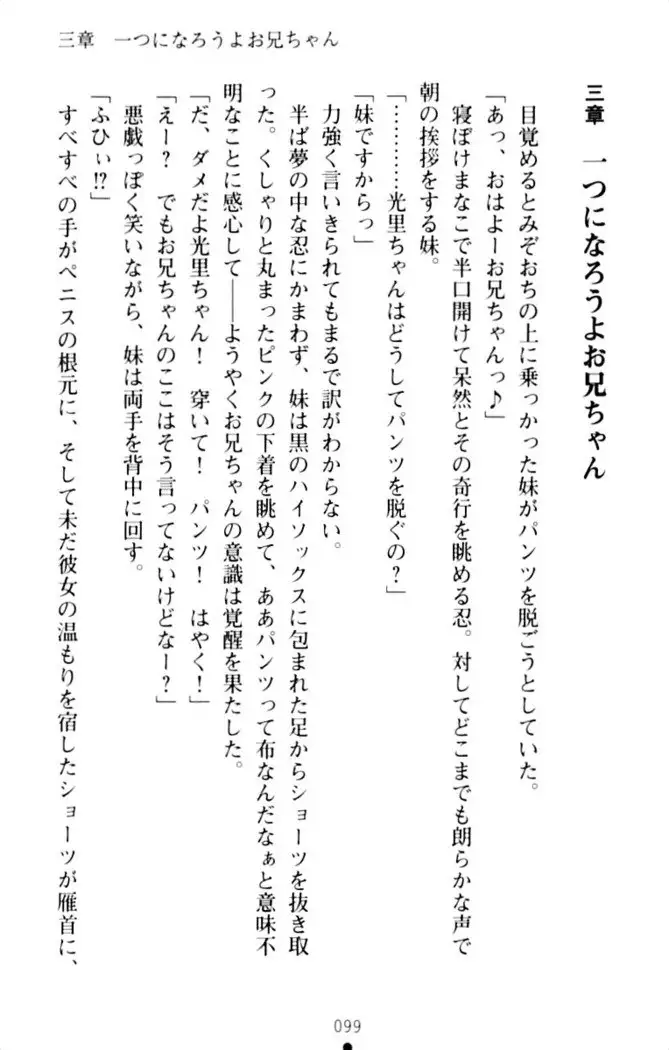 三章　一つになろうよお兄ちゃん
三章　一つになろうよお兄ちゃん
目覚めるとみぞおちの上に乗っかった妹がパンツを脱ごうとしていた。
「あっ、おはよーお兄ちゃんっ♪」
寝ぼけまなこで半口開けて呆然とその奇行を眺める忍。対してどこまでも朗らかな声で
朝の挨拶をする妹。
「…………光里ちゃんはどうしてパンツを脱ぐの？」
「妹ですからっ」
力強く言いきられてもまるで訳がわからない。
半ば夢の中な忍にかまわず、妹は黒のハイソックスに包まれた足からショーツを抜き取
った。くしゃりと丸まったピンクの下着を眺めて、ああパンツって布なんだなぁと意味不
明なことに感心して――ようやくお兄ちゃんの意識は覚醒を果たした。
「だ、ダメだよ光里ちゃん！　穿いて！　パンツ！　はやく！」
「えー？　でもお兄ちゃんのここはそう言ってないけどなー？」
悪戯っぽく笑いながら、妹は両手を背中に回す。
「ふひぃ!?」
すべすべの手がペニスの根元に、そして未だ彼女の温もりを宿したショーツが雁首に、
099